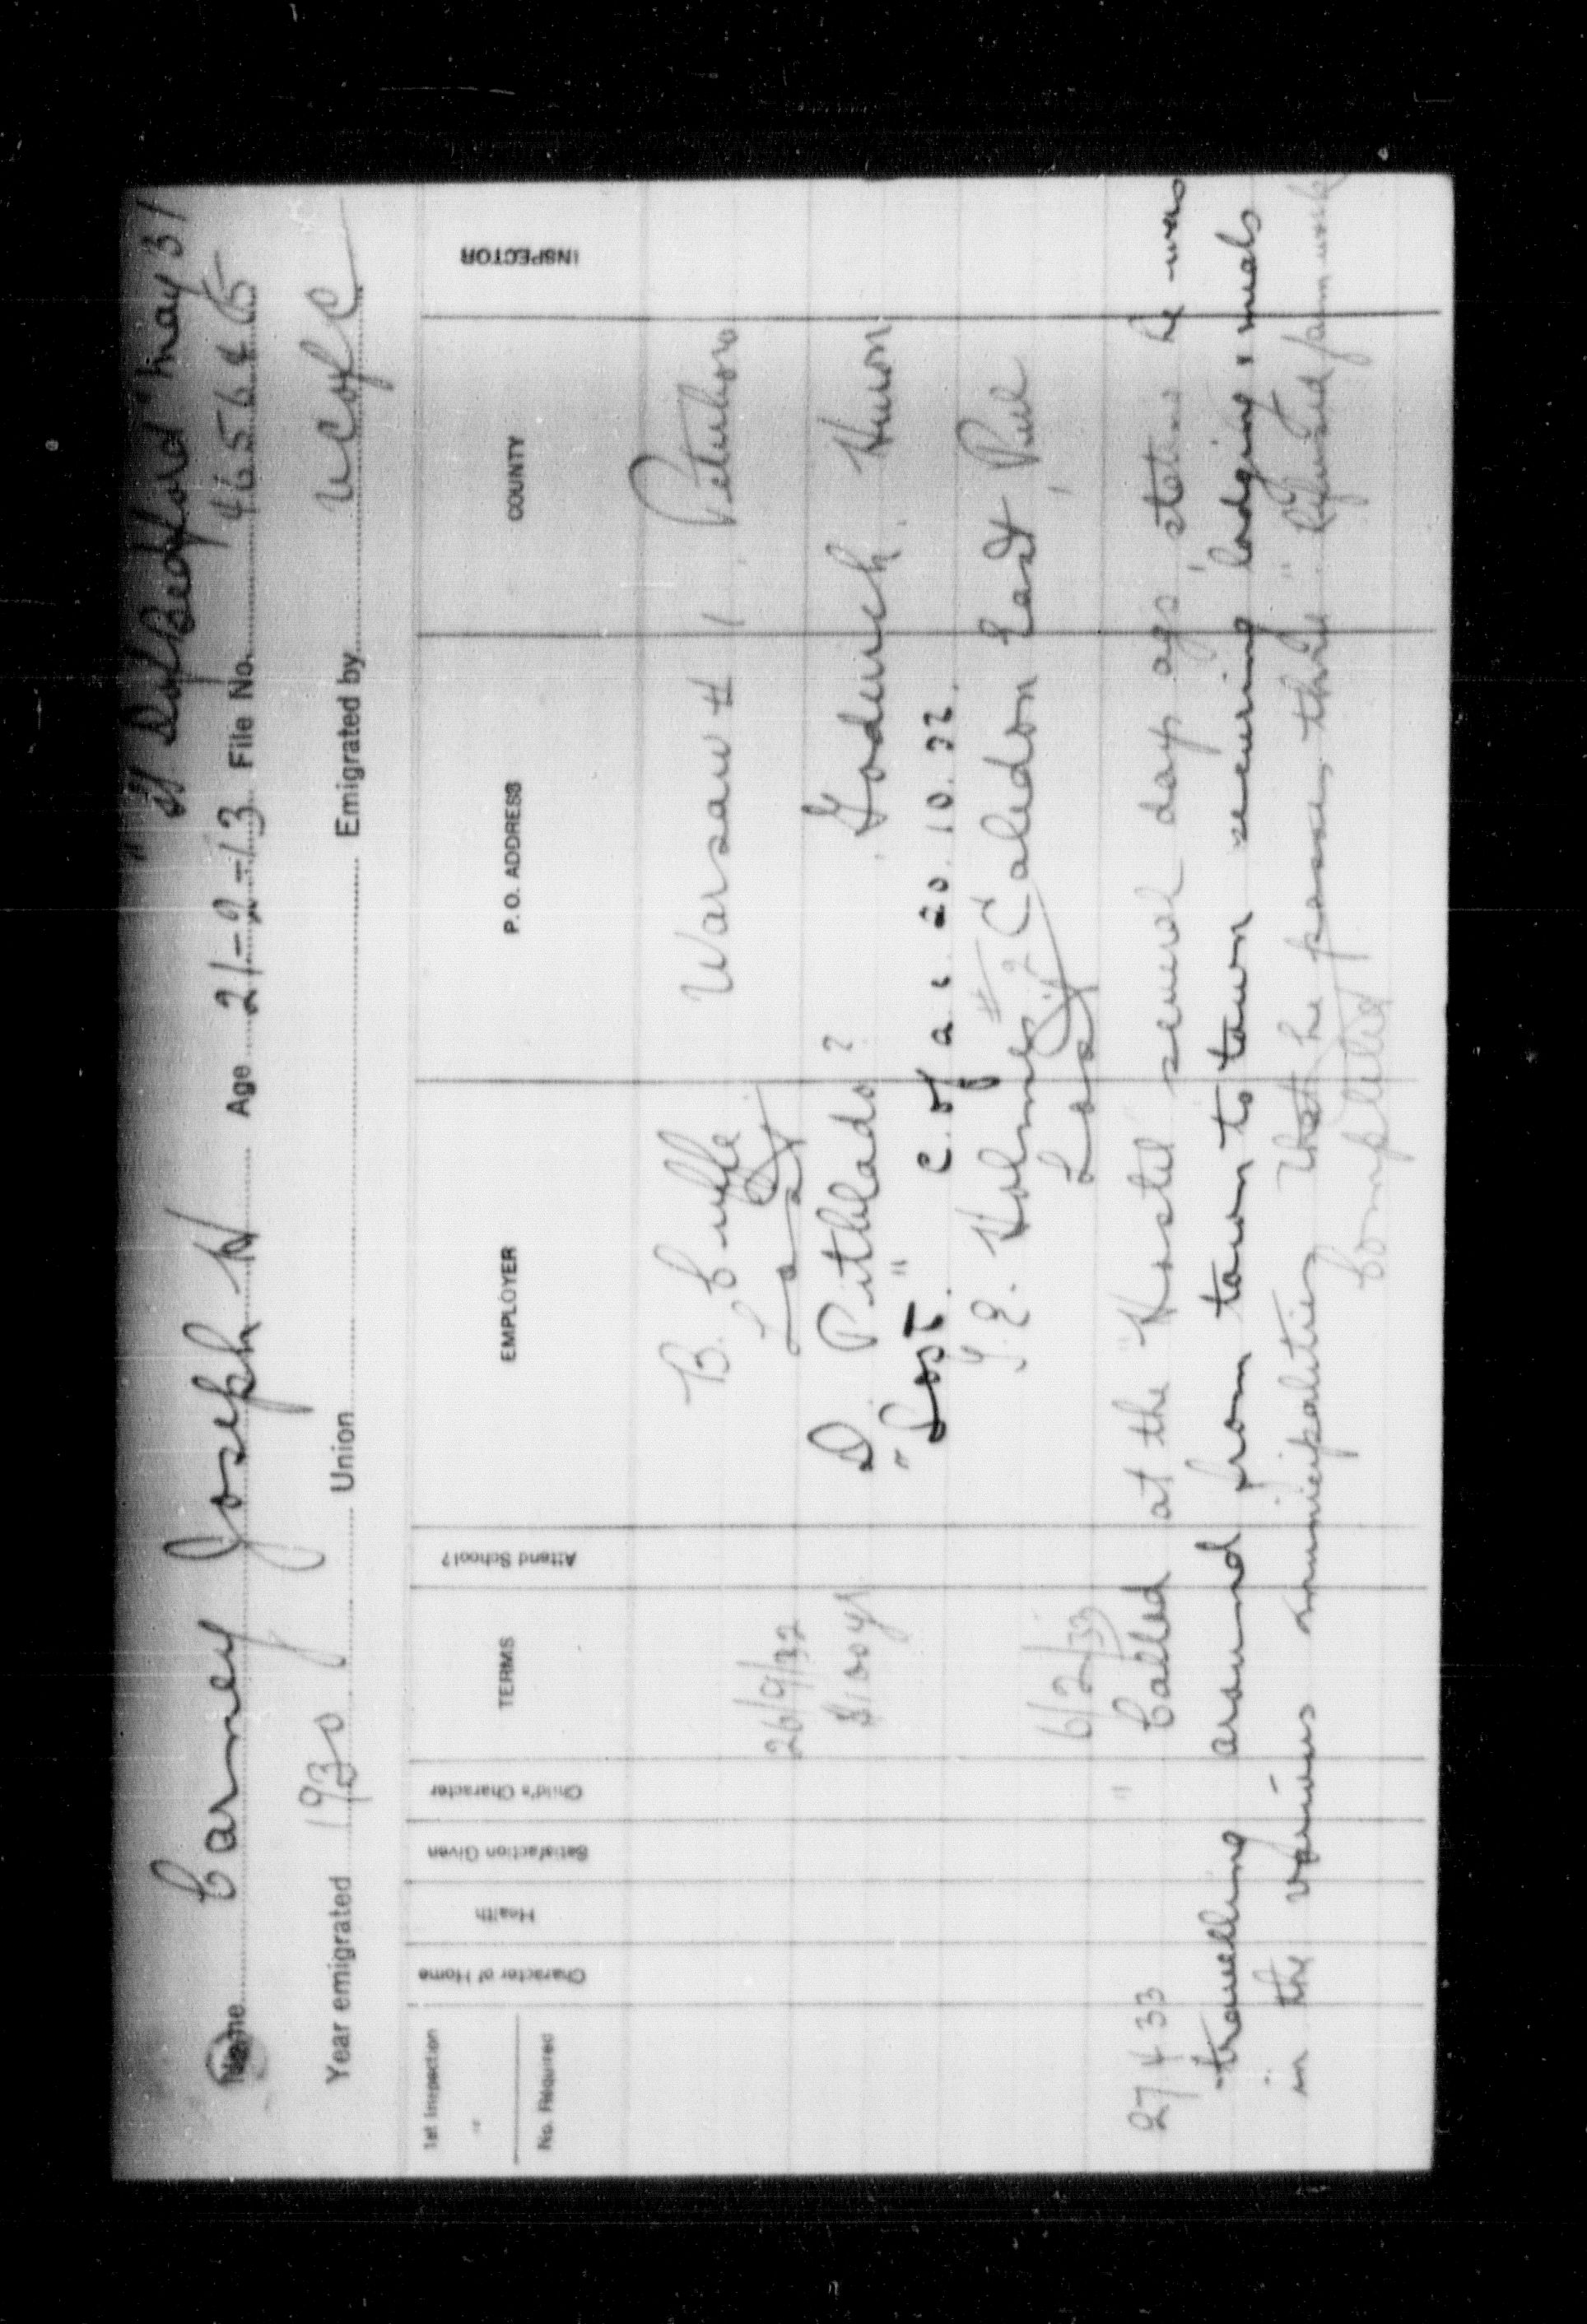 "D of Bedford" May 31
Name Carney Joseph W Age 21-2-13 File No. 465645
Year emigrated 1930 Union Emigrated by U C of C
1st Inspection
No. Required
Character of Home
Health
Satisfaction Given
Child's Character
TERMS
Attend School?
EMPLOYER
P. O. ADDRESS
COUNTY
INSPECTOR
B. Cuffe Warsaw #1. Peterboro
Lost
26/9/32
$100 yr D. Pithlado? Goderich. Huron
"Lost." C. of a c 20.10.32.
J. E. Holmes #2 Caledon East Peel
Lost
6/2/33
27 4 33 " Called at the "Hostel several days ago, states he was
travelling around from town to town securing lodging & meals
in the various municipalities that he passes thru" Refused farm work
Completed